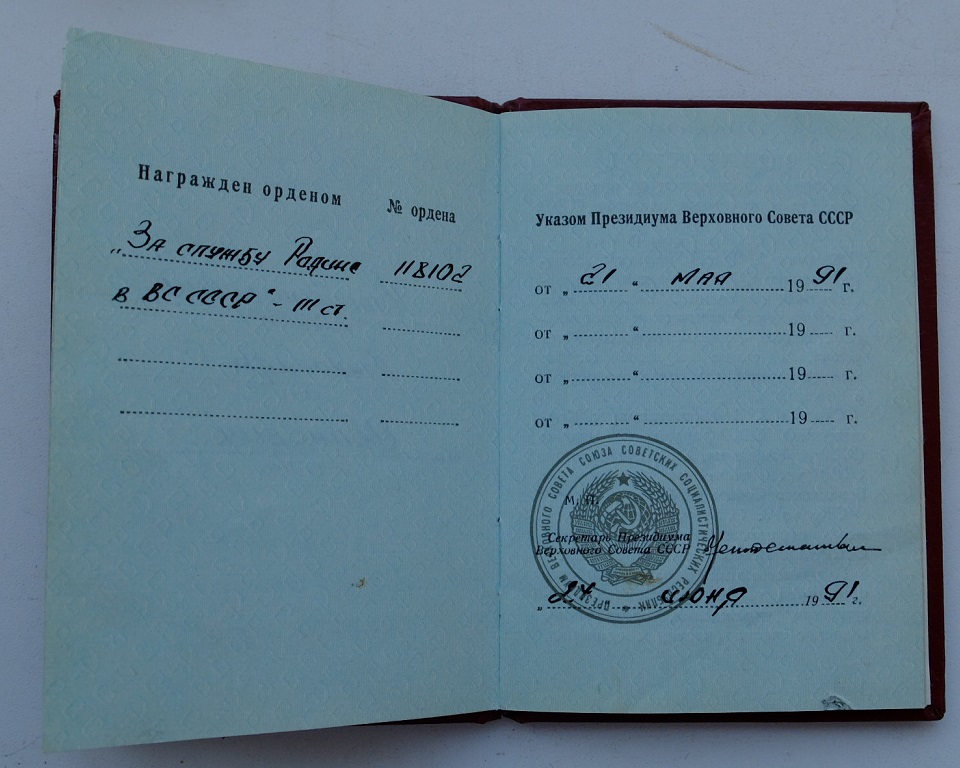 Награжден орденом № ордена
„За службу Родине 118102
в ВС СССР“ - III ст.
Указом Президиума Верховного Совета СССР
от „ 21 “ мая 19 91 г.
от „ “ 19 г.
от „ “ 19 г.
от „ “ 19 г.
ПРЕЗИДИУМ ВЕРХОВНОГО СОВЕТА СОЮЗА СОВЕТСКИХ СОЦИАЛИСТИЧЕСКИХ РЕСПУБЛИК
М. П.
Секретарь Президиума
Верховного Совета СССР
„ 24 июня 19 91 г.